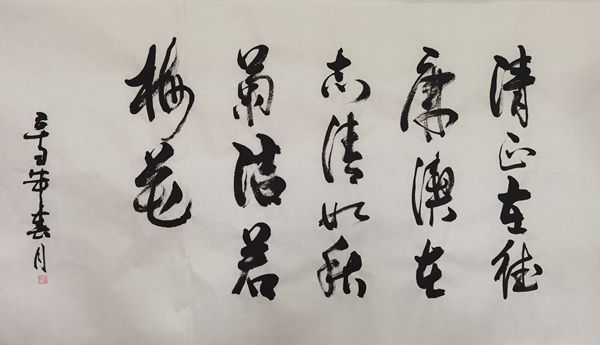 清正在德
廉潔在
志清如秋
菊洁若
梅花
春月